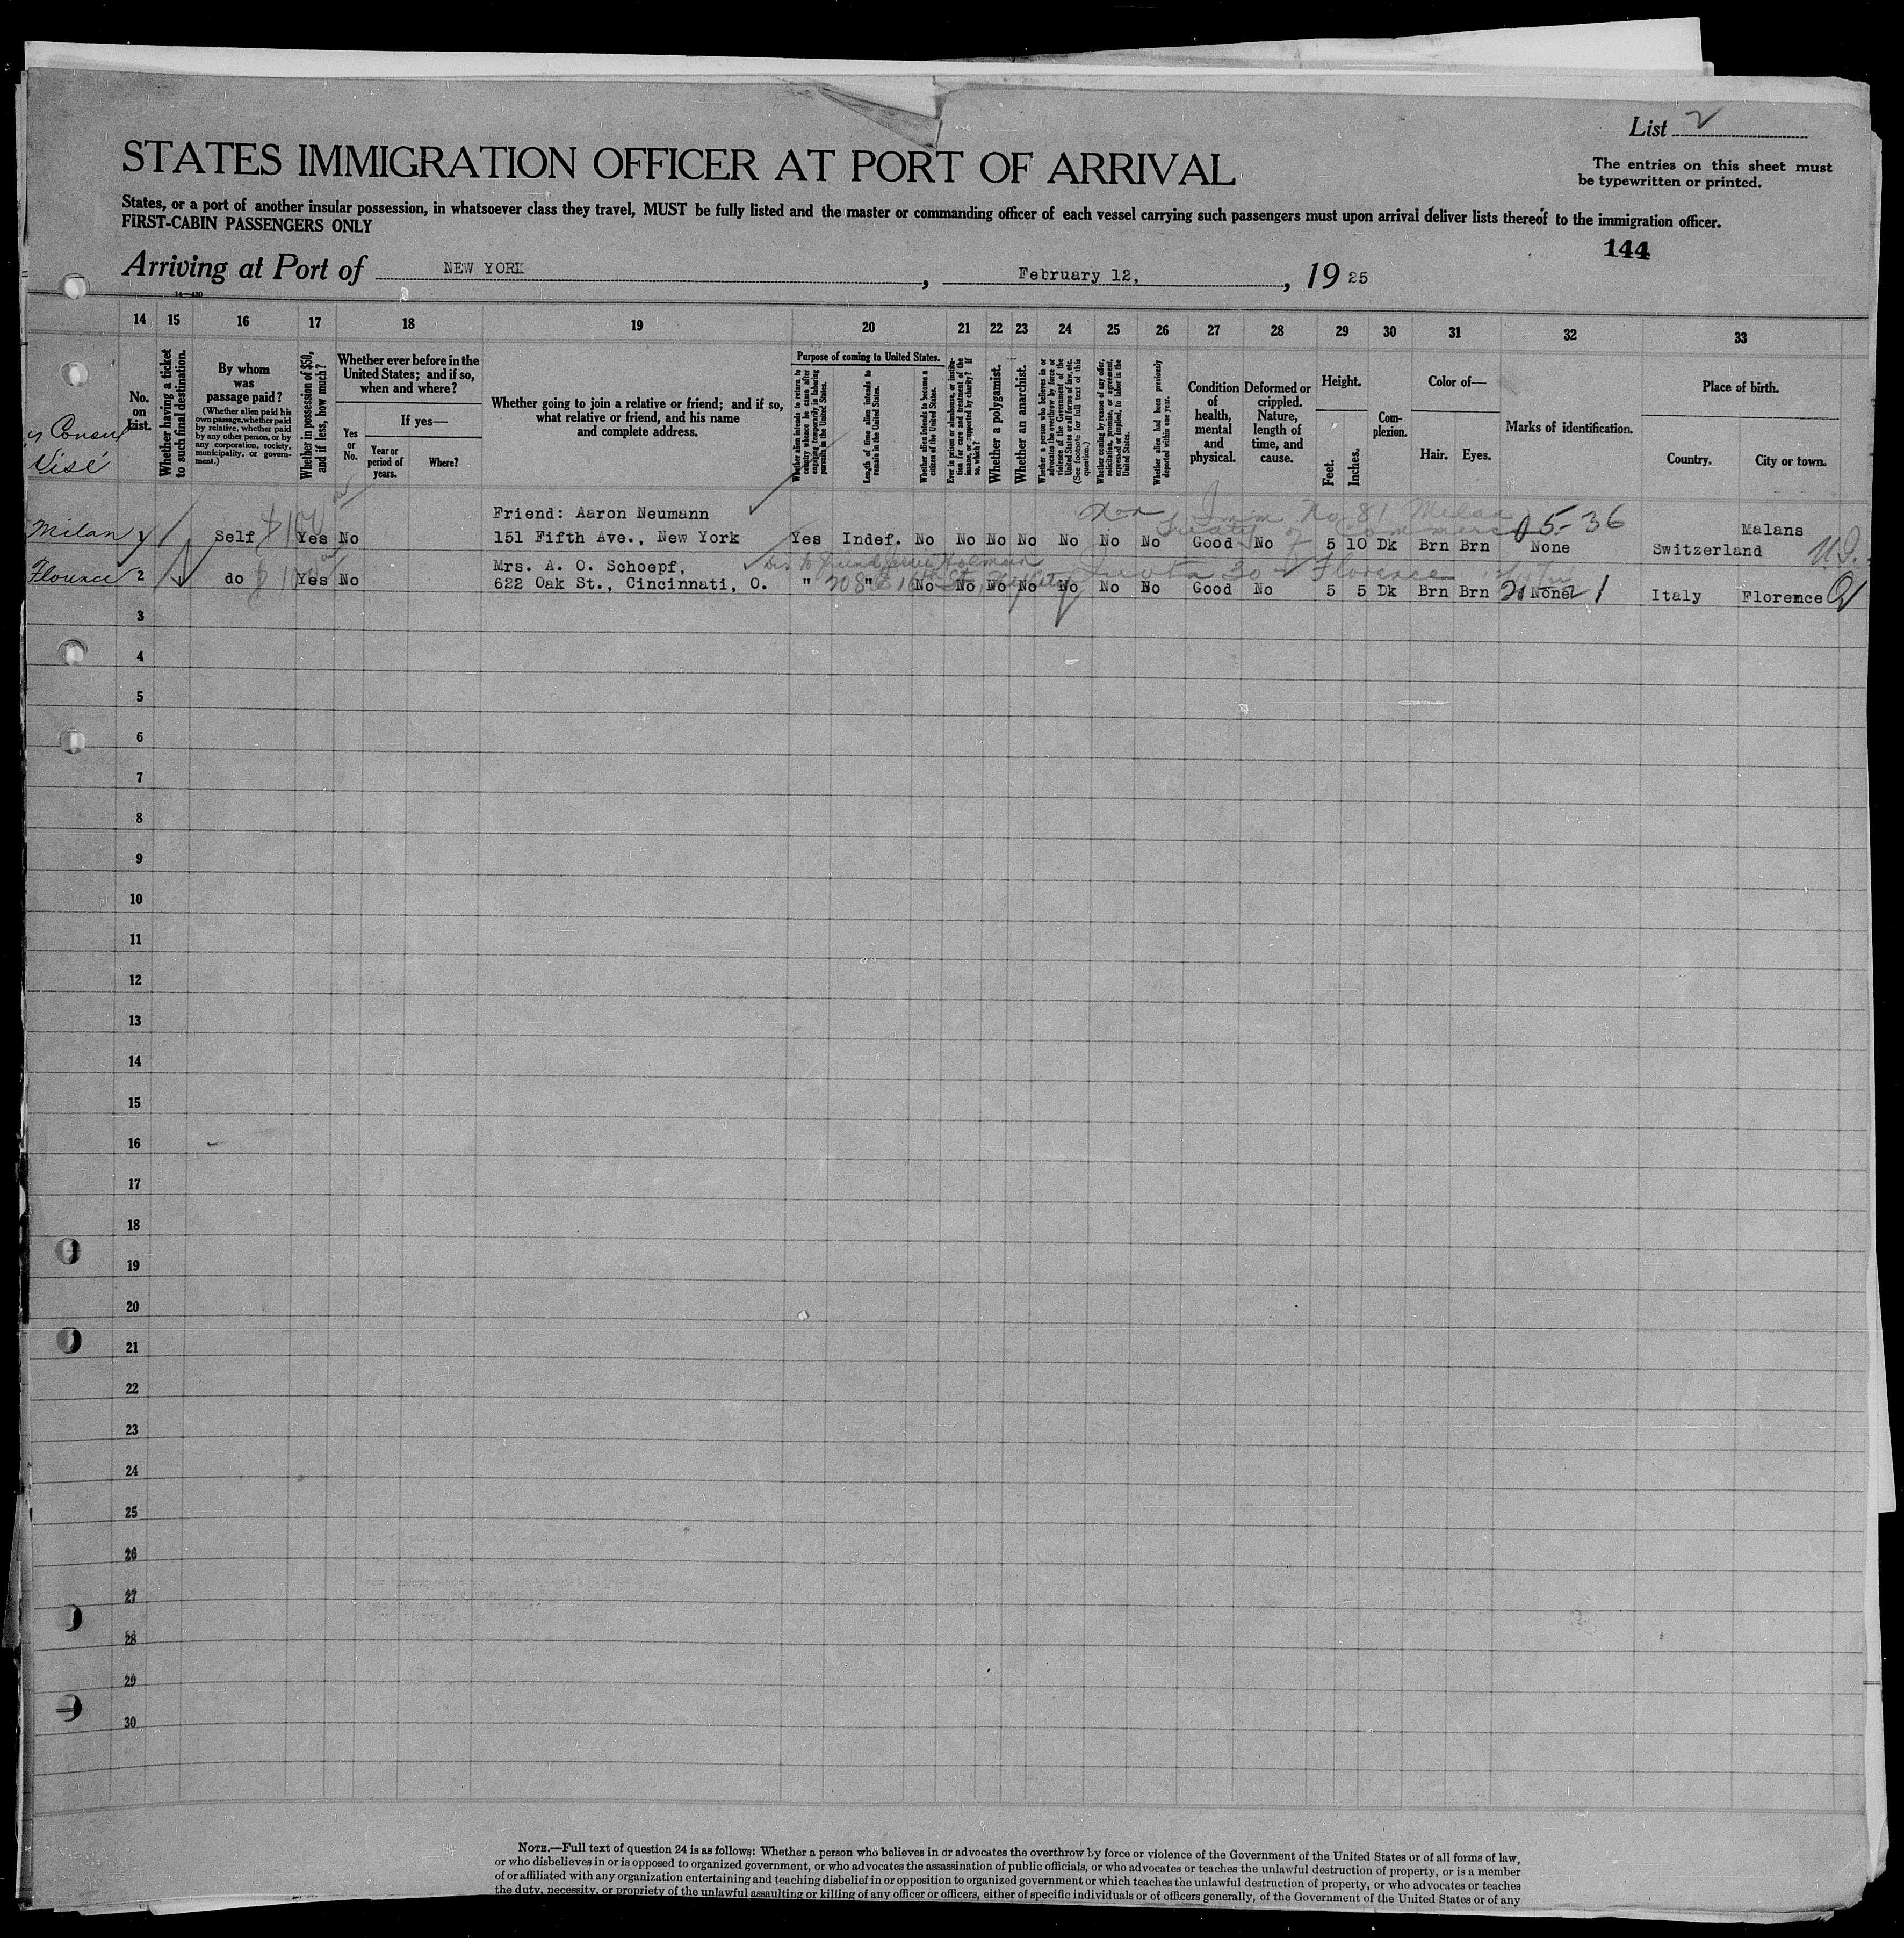 List 2
STATES IMMIGRATION OFFICER AT PORT OF ARRIVAL
The entries on this sheet must
be typewritten or printed.
States, or a port of another insular possession, in whatsoever class they travel, MUST be fully listed and the master or commanding officer of each vessel carrying such passengers must upon arrival deliver lists thereof to the immigration officer.
FIRST-CABIN PASSENGERS ONLY
144
Arriving at Port of NEW YORK, February 12, 1925
14 15 16 17 18 19 20 21 22 23 24 25 26 27 28 29 30 31 32 33
Consul
Visé
No.
on
list.
Whether having a ticket
to such final destination.
By whom
was
passage paid?
(Whether alien paid his
own passage, whether paid
by relative, whether paid
by any other person, or by
any corporation, society,
municipality, or govern-
ment.)
Whether in possession of $50,
and if less, how much?
Whether ever before in the
United States; and if so,
when and where?
Yes
or
No.
If yes—
Year or
period of
years.
Where?
Whether going to join a relative or friend; and if so,
what relative or friend, and his name
and complete address.
Purpose of coming to United States.
Whether alien intends to return to
country whence he came after
engaging temporarily in laboring
pursuits in the United States.
Length of time alien intends to
remain in the United States.
Whether alien intends to become a
citizen of the United States.
Ever in prison or almshouse, or institu-
tion for care and treatment of the
insane, or supported by charity? If
so, which?
Whether a polygamist.
Whether an anarchist.
Whether a person who believes in or
advocates the overthrow by force or
violence of the Government of the
United States or all forms of law, etc.
(See footnote for full text of this
question.)
Whether coming by reason of any offer,
solicitation, promise, or agreement,
expressed or implied, to labor in the
United States.
Whether alien had been previously
deported within one year.
Condition
of
health,
mental
and
physical.
Deformed or
crippled.
Nature,
length of
time, and
cause.
Height.
Feet.
Inches.
Com-
plexion.
Color of—
Hair. Eyes.
Marks of identification.
Place of birth.
Country. City or town.
Non Imm No 81 Milan
Treaty of Commerce
05-36
Friend: Aaron Neumann
Milan 1 Self $100 Yes No 151 Fifth Ave., New York Yes Indef. No No No No No No No Good No 5 10 Dk Brn Brn None Switzerland Malans
Mrs. A. O. Schoepf,
Florence 2 do $100 Yes No 622 Oak St., Cincinnati, O. " " No No No No No No No Good No 5 5 Dk Brn Brn None Italy Florence
to friend
208 E 16th St
30 Florence
3
4
5
6
7
8
9
10
11
12
13
14
15
16
17
18
19
20
21
22
23
24
25
26
27
28
29
30
NOTE.—Full text of question 24 is as follows: Whether a person who believes in or advocates the overthrow by force or violence of the Government of the United States or of all forms of law,
or who disbelieves in or is opposed to organized government, or who advocates the assassination of public officials, or who advocates or teaches the unlawful destruction of property, or is a member
of or affiliated with any organization entertaining and teaching disbelief in or opposition to organized government or which teaches the unlawful destruction of property, or who advocates or teaches
the duty, necessity, or propriety of the unlawful assaulting or killing of any officer or officers, either of specific individuals or of officers generally, of the Government of the United States or of any